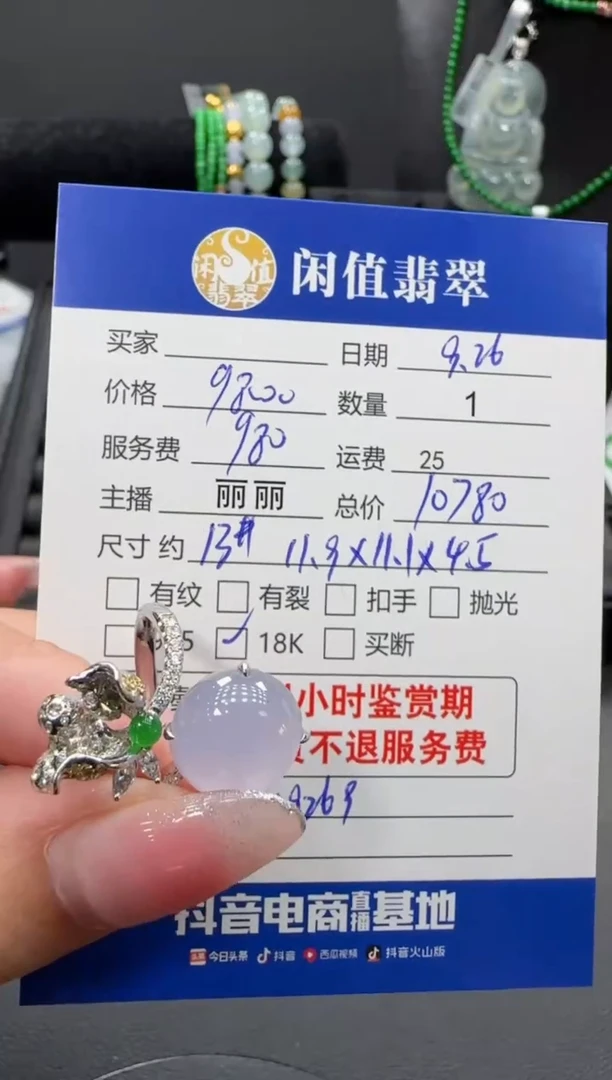 闲值翡翠
闲值翡翠
买家 日期 9.26
价格 9800 数量 1
服务费 980 运费 25
主播 丽丽 总价 10780
尺寸 约 13# 11.9×11.1×4.5
有纹 有裂 扣手 抛光
5 18K 买断
小时鉴赏期
不退服务费
抖音电商直播基地
头条 今日头条 抖音 西瓜视频 抖音火山版